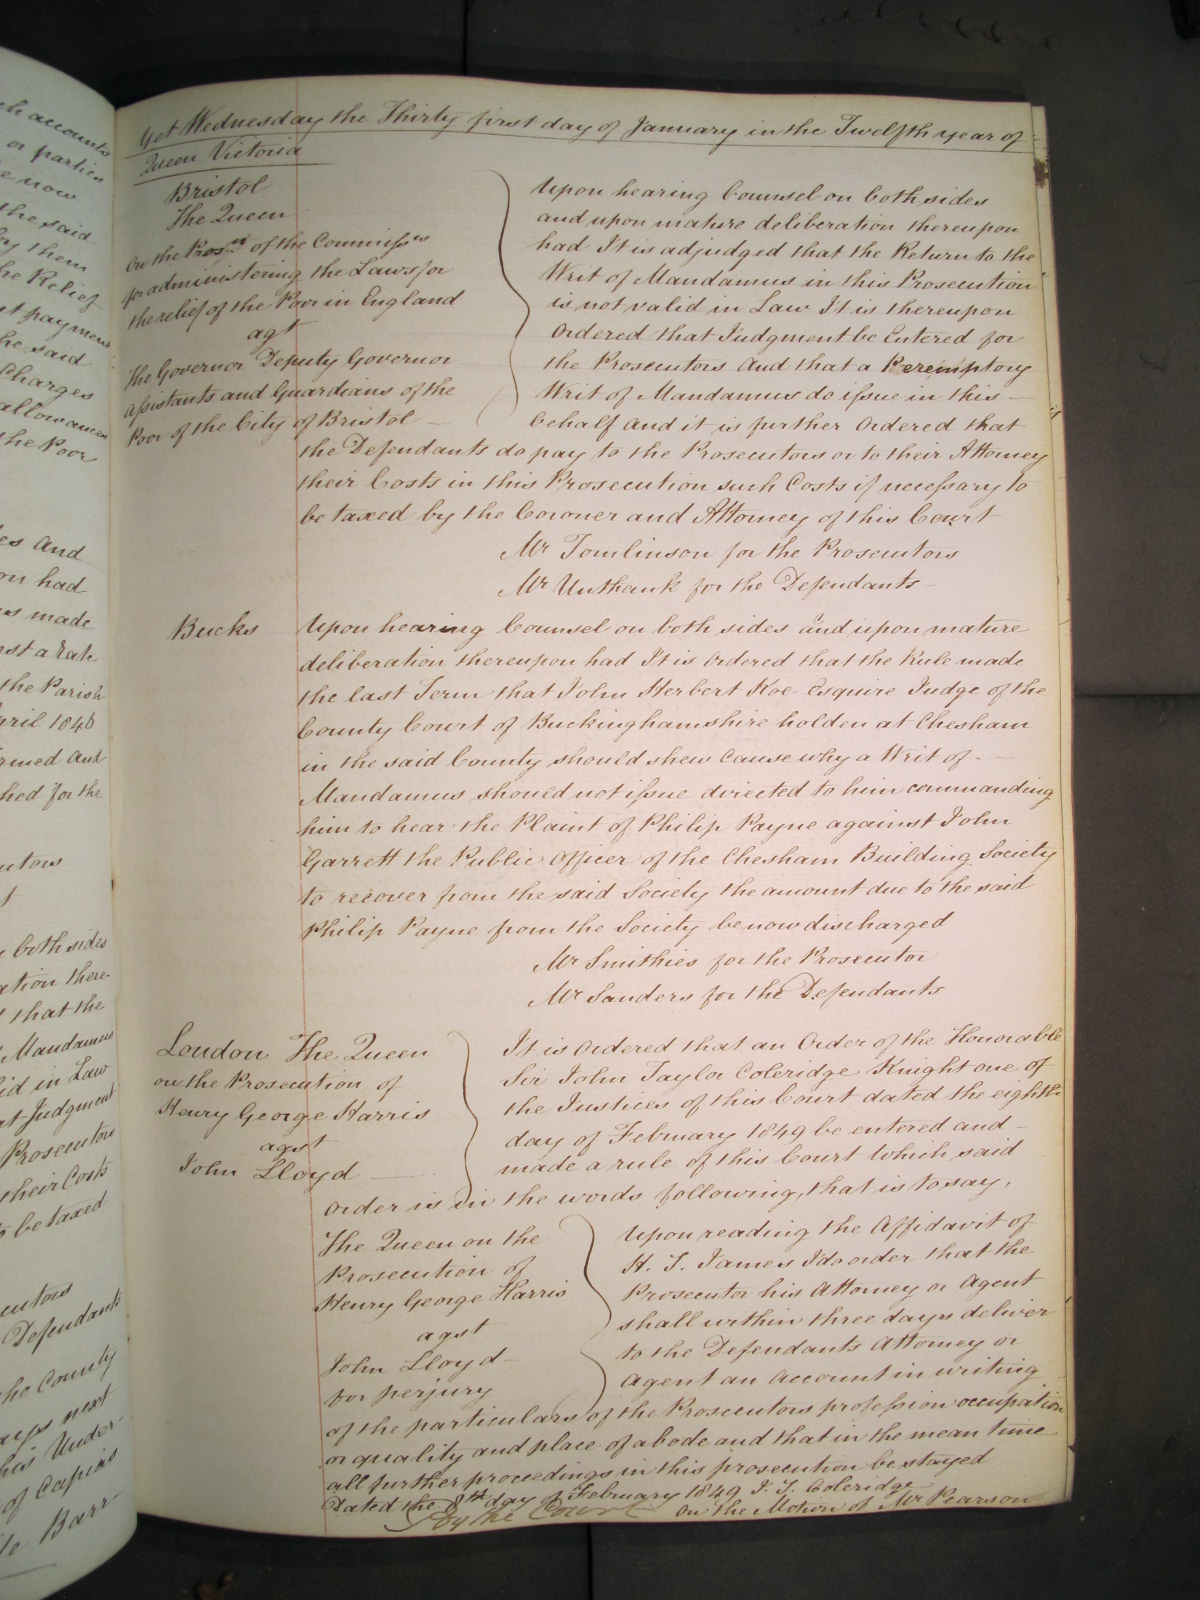 Yet Wednesday the Thirty first day of January in the Twelfth year of
Queen Victoria
Bristol
The Queen
on the Prosn of the Commissrs
for administering the Laws for
the relief of the Poor in England
agt
The Governor Deputy Governor
Assistants and Guardians of the
Poor of the City of Bristol
Upon hearing Counsel on both sides
and upon mature deliberation thereupon
had It is adjudged that the Return to the
Writ of Mandamus in this Prosecution
is not valid in Law It is thereupon
Ordered that Judgment be Entered for
the Prosecutors And that a Peremptory
Writ of Mandamus do issue in this
behalf And it is further Ordered that
the Defendants do pay to the Prosecutors or to their Attorney
their Costs in this Prosecution such Costs if necessary to
be taxed by the Coroner and Attorney of this Court
Mr Tomlinson for the Prosecutors
Mr Unthank for the Defendants
Bucks
Upon hearing Counsel on both sides And upon mature
deliberation thereupon had It is Ordered that the Rule made
the last Term that John Herbert Koe Esquire Judge of the
County Court of Buckinghamshire holden at Chesham
in the said County should shew Cause why a Writ of
Mandamus should not issue directed to him commanding
him to hear the Plaint of Philip Payne against John
Garrett the Public Officer of the Chesham Building Society
to recover from the said Society the amount due to the said
Philip Payne from the Society be now discharged
Mr Smithies for the Prosecutor
Mr Sanders for the Defendants
London The Queen
on the Prosecution of
Henry George Harris
agst
John Lloyd
It is Ordered that an Order of the Honorable
Sir John Taylor Coleridge Knight one of
the Justices of this Court dated the eighth
day of February 1849 be entered and
made a rule of this Court Which said
Order is in the words following, that is to say,
The Queen on the
Prosecution of
Henry George Harris
agst
John Lloyd
for perjury
Upon reading the Affidavit of
H. T. James I do order that the
Prosecutor his Attorney or Agent
shall within three days deliver
to the Defendants Attorney or
Agent an Account in writing
of the particulars of the Prosecutors profession occupation
or quality and place of abode and that in the mean time
all further proceedings in this prosecution be stayed
Dated the 8th day of February 1849 J. T. Coleridge
On the Motion of Mr Pearson
By the Court